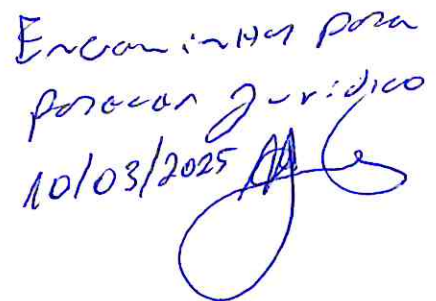 Encaminhar para
parecer Jurídico
10/03/2025